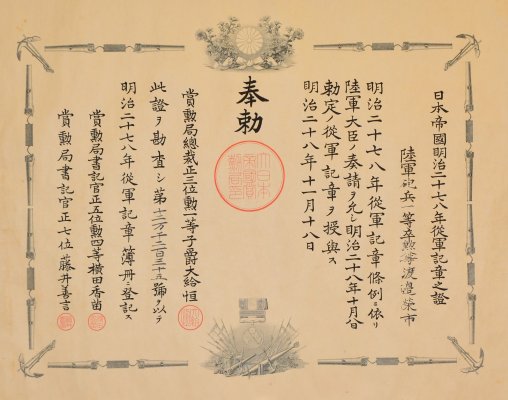 日本帝國明治二十七八年從軍記章之證
陸軍砲兵一等卒勲八等渡邉榮市
明治二十七八年從軍記章條例ニ依リ
陸軍大臣ノ奏請ヲ允シ明治二十八年十月八日
勅定ノ從軍記章ヲ授與ス
明治二十八年十一月十八日
奉勅
賞勲局總裁正三位勲一等子爵大給恒
此證ヲ勘査シ第十二万千二百三十五號ヲ以テ
明治二十七八年從軍記章簿冊ニ登記ス
賞勲局書記官正五位勲四等横田香苗
賞勲局書記官正七位藤井善言